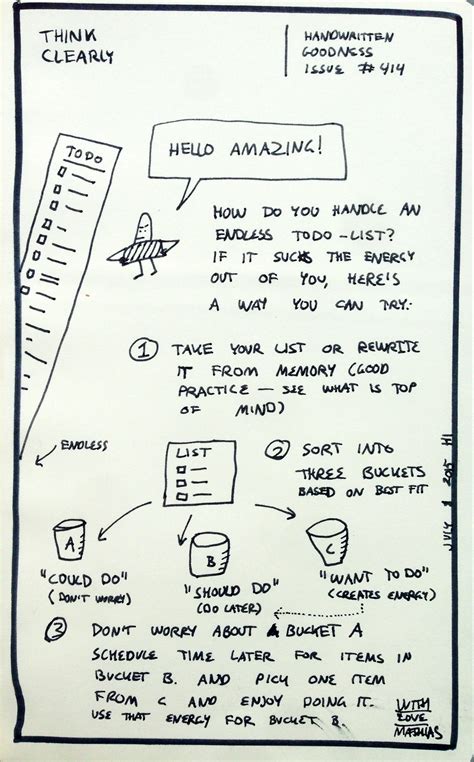 THINK
CLEARLY
HANDWRITTEN
GOODNESS
ISSUE #414
TODO
HELLO AMAZING!
HOW DO YOU HANDLE AN
ENDLESS TODO-LIST?
IF IT SUCKS THE ENERGY
OUT OF YOU, HERE'S
A WAY YOU CAN TRY:
1 TAKE YOUR LIST OR REWRITE
IT FROM MEMORY (GOOD
PRACTICE — SEE WHAT IS TOP
OF MIND)
ENDLESS
LIST
2 SORT INTO
THREE BUCKETS
BASED ON BEST FIT
A
B
C
"COULD DO"
(DON'T WORRY)
"SHOULD DO"
(DO LATER)
"WANT TO DO"
(CREATES ENERGY)
3 DON'T WORRY ABOUT BUCKET A
SCHEDULE TIME LATER FOR ITEMS IN
BUCKET B. AND PICK ONE ITEM
FROM C AND ENJOY DOING IT.
USE THAT ENERGY FOR BUCKET B.
WITH
LOVE
MATHIAS
JULY 1 2015 HI